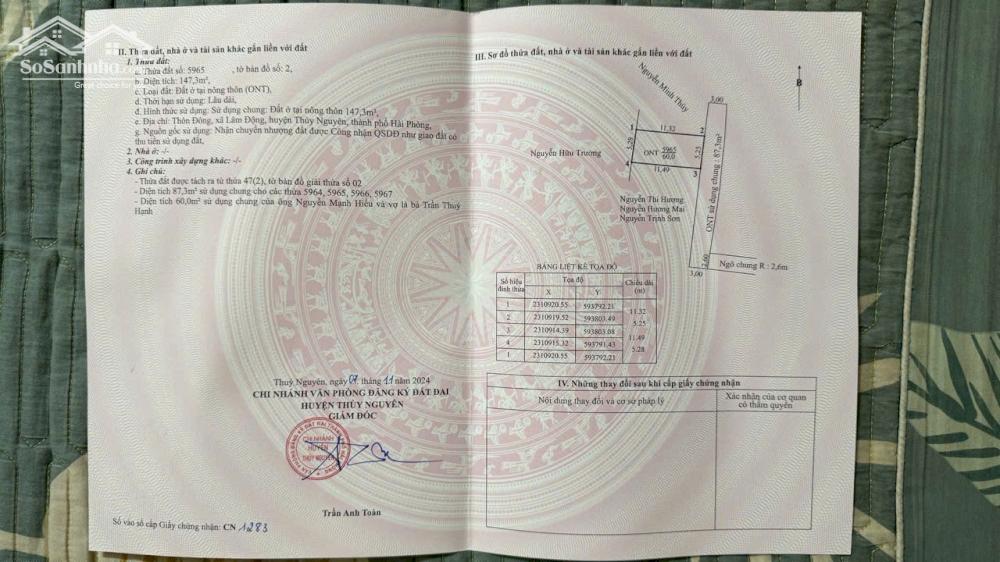 SoSanhnha.com
Great choice for
II. Thửa đất, nhà ở và tài sản khác gắn liền với đất
1. Thửa đất:
a. Thửa đất số: 5965 , tờ bản đồ số: 2,
b. Diện tích: 147,3m²,
c. Loại đất: Đất ở tại nông thôn (ONT),
d. Thời hạn sử dụng: Lâu dài,
đ. Hình thức sử dụng: Sử dụng chung: Đất ở tại nông thôn 147,3m²;
e. Địa chỉ: Thôn Đông, xã Lâm Động, huyện Thủy Nguyên, thành phố Hải Phòng,
g. Nguồn gốc sử dụng: Nhận chuyển nhượng đất được Công nhận QSDĐ như giao đất có
thu tiền sử dụng đất,
2. Nhà ở: -/-
3. Công trình xây dựng khác: -/-
4. Ghi chú:
- Thửa đất được tách ra từ thửa 47(2), tờ bản đồ giải thửa số 02
- Diện tích 87,3m² sử dụng chung cho các thửa 5964, 5965, 5966, 5967
- Diện tích 60,0m² sử dụng chung của ông Nguyễn Mạnh Hiếu và vợ là bà Trần Thuý
Hạnh
Thuỷ Nguyên, ngày 07 tháng 11 năm 2024
CHI NHÁNH VĂN PHÒNG ĐĂNG KÝ ĐẤT ĐAI
HUYỆN THỦY NGUYÊN
GIÁM ĐỐC
CHI NHÁNH
HUYỆN
THỦY NGUYÊN
Trần Anh Toàn
Số vào sổ cấp Giấy chứng nhận: CN 1283
III. Sơ đồ thửa đất, nhà ở và tài sản khác gắn liền với đất
B
Nguyễn Minh Thúy
3,00
1 11,32 2
5,29
5,25
ONT 5965
60,0
Nguyễn Hữu Trường
4 11,49 3
ONT sử dụng chung : 87,3m²
Nguyễn Thị Hương
Nguyễn Hương Mai
Nguyễn Trịnh Sơn
2,60
Ngõ chung R : 2,6m
3,00
BẢNG LIỆT KÊ TỌA ĐỘ
Số hiệu đỉnh thửa
Tọa độ
Chiều dài (m)
X Y
1 2310920.55 593792.21
11.32
2 2310919.52 593803.49
5.25
3 2310914.39 593803.08
11.49
4 2310915.32 593791.43
5.28
1 2310920.55 593792.21
IV. Những thay đổi sau khi cấp giấy chứng nhận
Nội dung thay đổi và cơ sở pháp lý
Xác nhận của cơ quan
có thẩm quyền